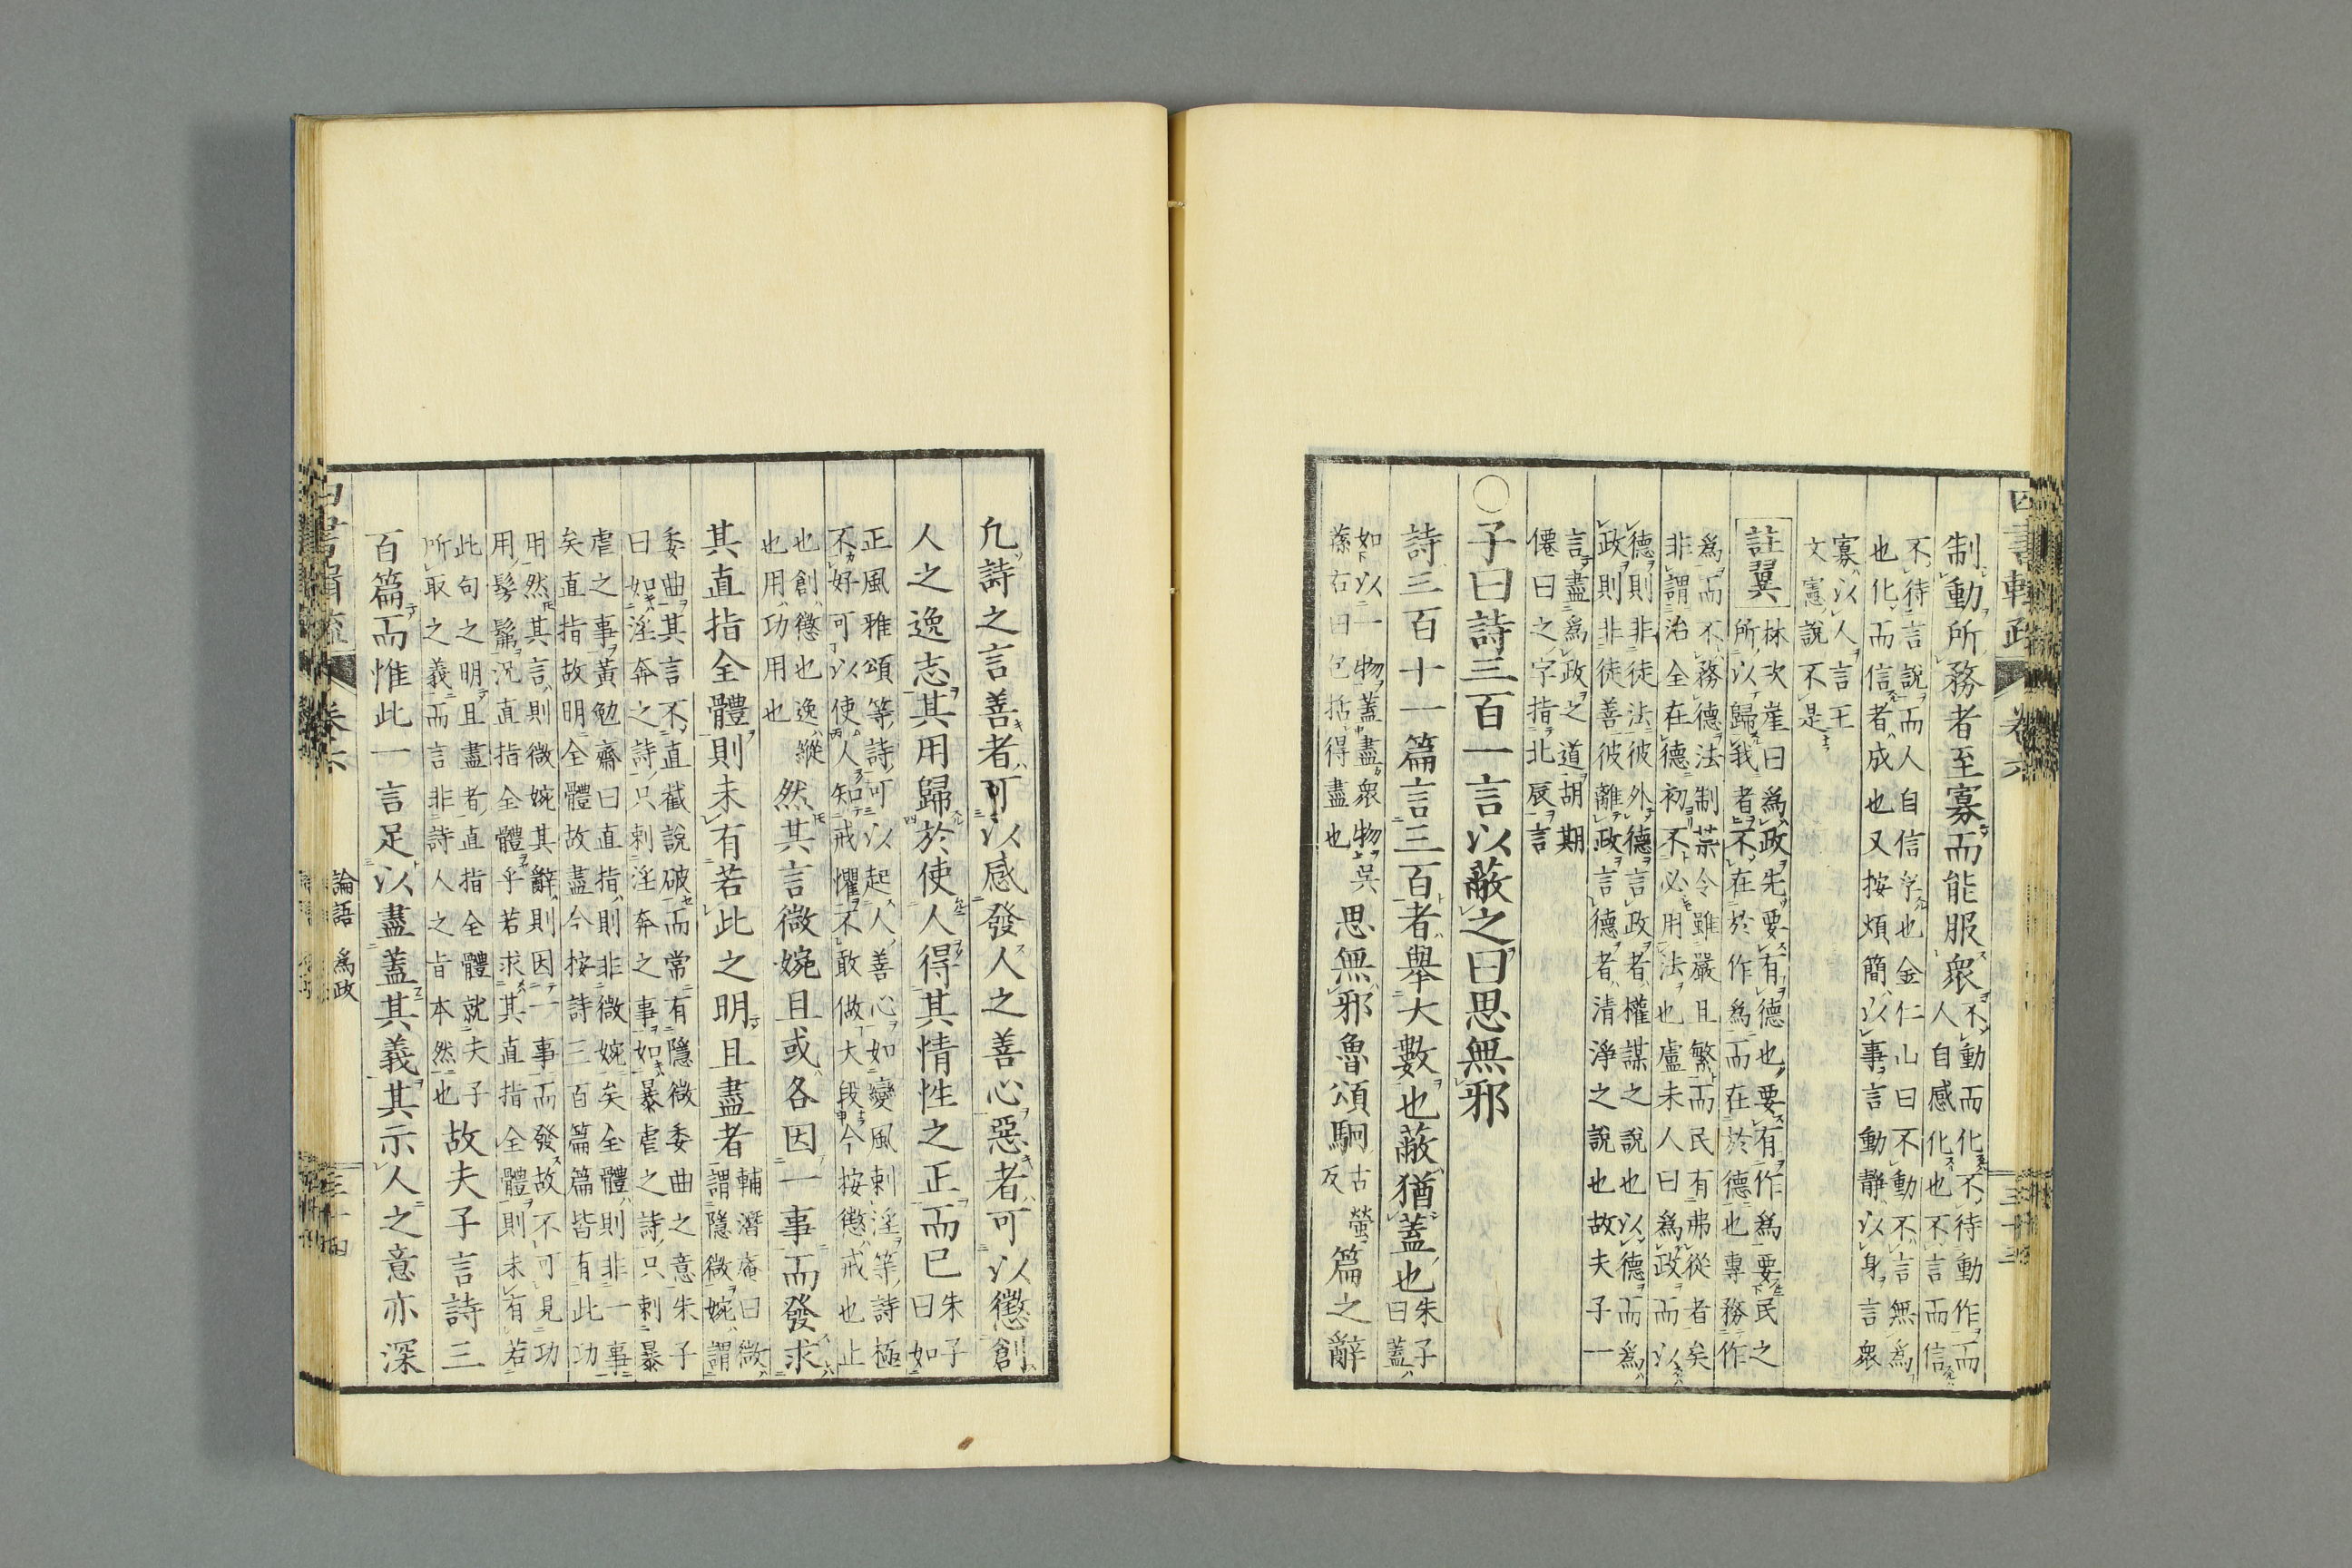 制動所務者至寡而能服衆不動而化不待動作而
人自感化也不言而信
不待言說而人自信学也金仁山曰不動不言無爲
也化而信者成也又按煩簡以事言動静以身言衆
寡以人言王
文憲說不是
註翼林次崖曰爲政先要有德也要有作爲要民之
所以歸我者不在於作爲而在於德也專務作
爲而不務德法制禁令雖嚴且繁而民有弗從者矣
非謂治全在德初不必用法也盧未人曰爲政而以
德則非徒法彼外德言政者權謀之說也以德而爲
政則非徒善彼離政言德者清淨之說也故夫子一
言盡爲政之道胡期
僊曰之字指北辰言
○子曰詩三百一言以蔽之曰思無邪
詩三百十一篇言三百者舉大數也蔽猶蓋也朱子曰蓋
如以一物蓋盡衆物吳
蓀右曰包括得盡也
思無邪魯頌駉古螢反篇之辭
凡詩之言善者可以感發人之善心惡者可以懲創
人之逸志其用歸於使人得其情性之正而已朱子曰如
正風雅頌等詩可以起人善心如變風刺淫等詩極
不好可以使人知戒懼不敢做大段今按懲戒也止
也創懲也逸縱
也用功用也
然其言微婉且或各因一事而發求
其直指全體則未有若此之明且盡者輔潛庵曰微謂隱微婉謂
委曲其言不直截說破而常有隱微委曲之意朱子
曰如淫奔之詩只刺淫奔之事如暴虐之詩只刺暴
虐之事黃勉齋曰直指則非微婉矣全體則非一事
矣直指故明全體故盡今按詩三百篇篇皆有此功
用然其言則微婉其辭則因一事而發故不可見功
用髣髴況直指全體乎若求其直指全體則未有若
此句之明且盡者直指全體就夫子
所取之義而言非詩人之旨本然也
故夫子言詩三
百篇而惟此一言足以盡蓋其義其示人之意亦深
四書輯疏 卷六 論語 爲政 三十四